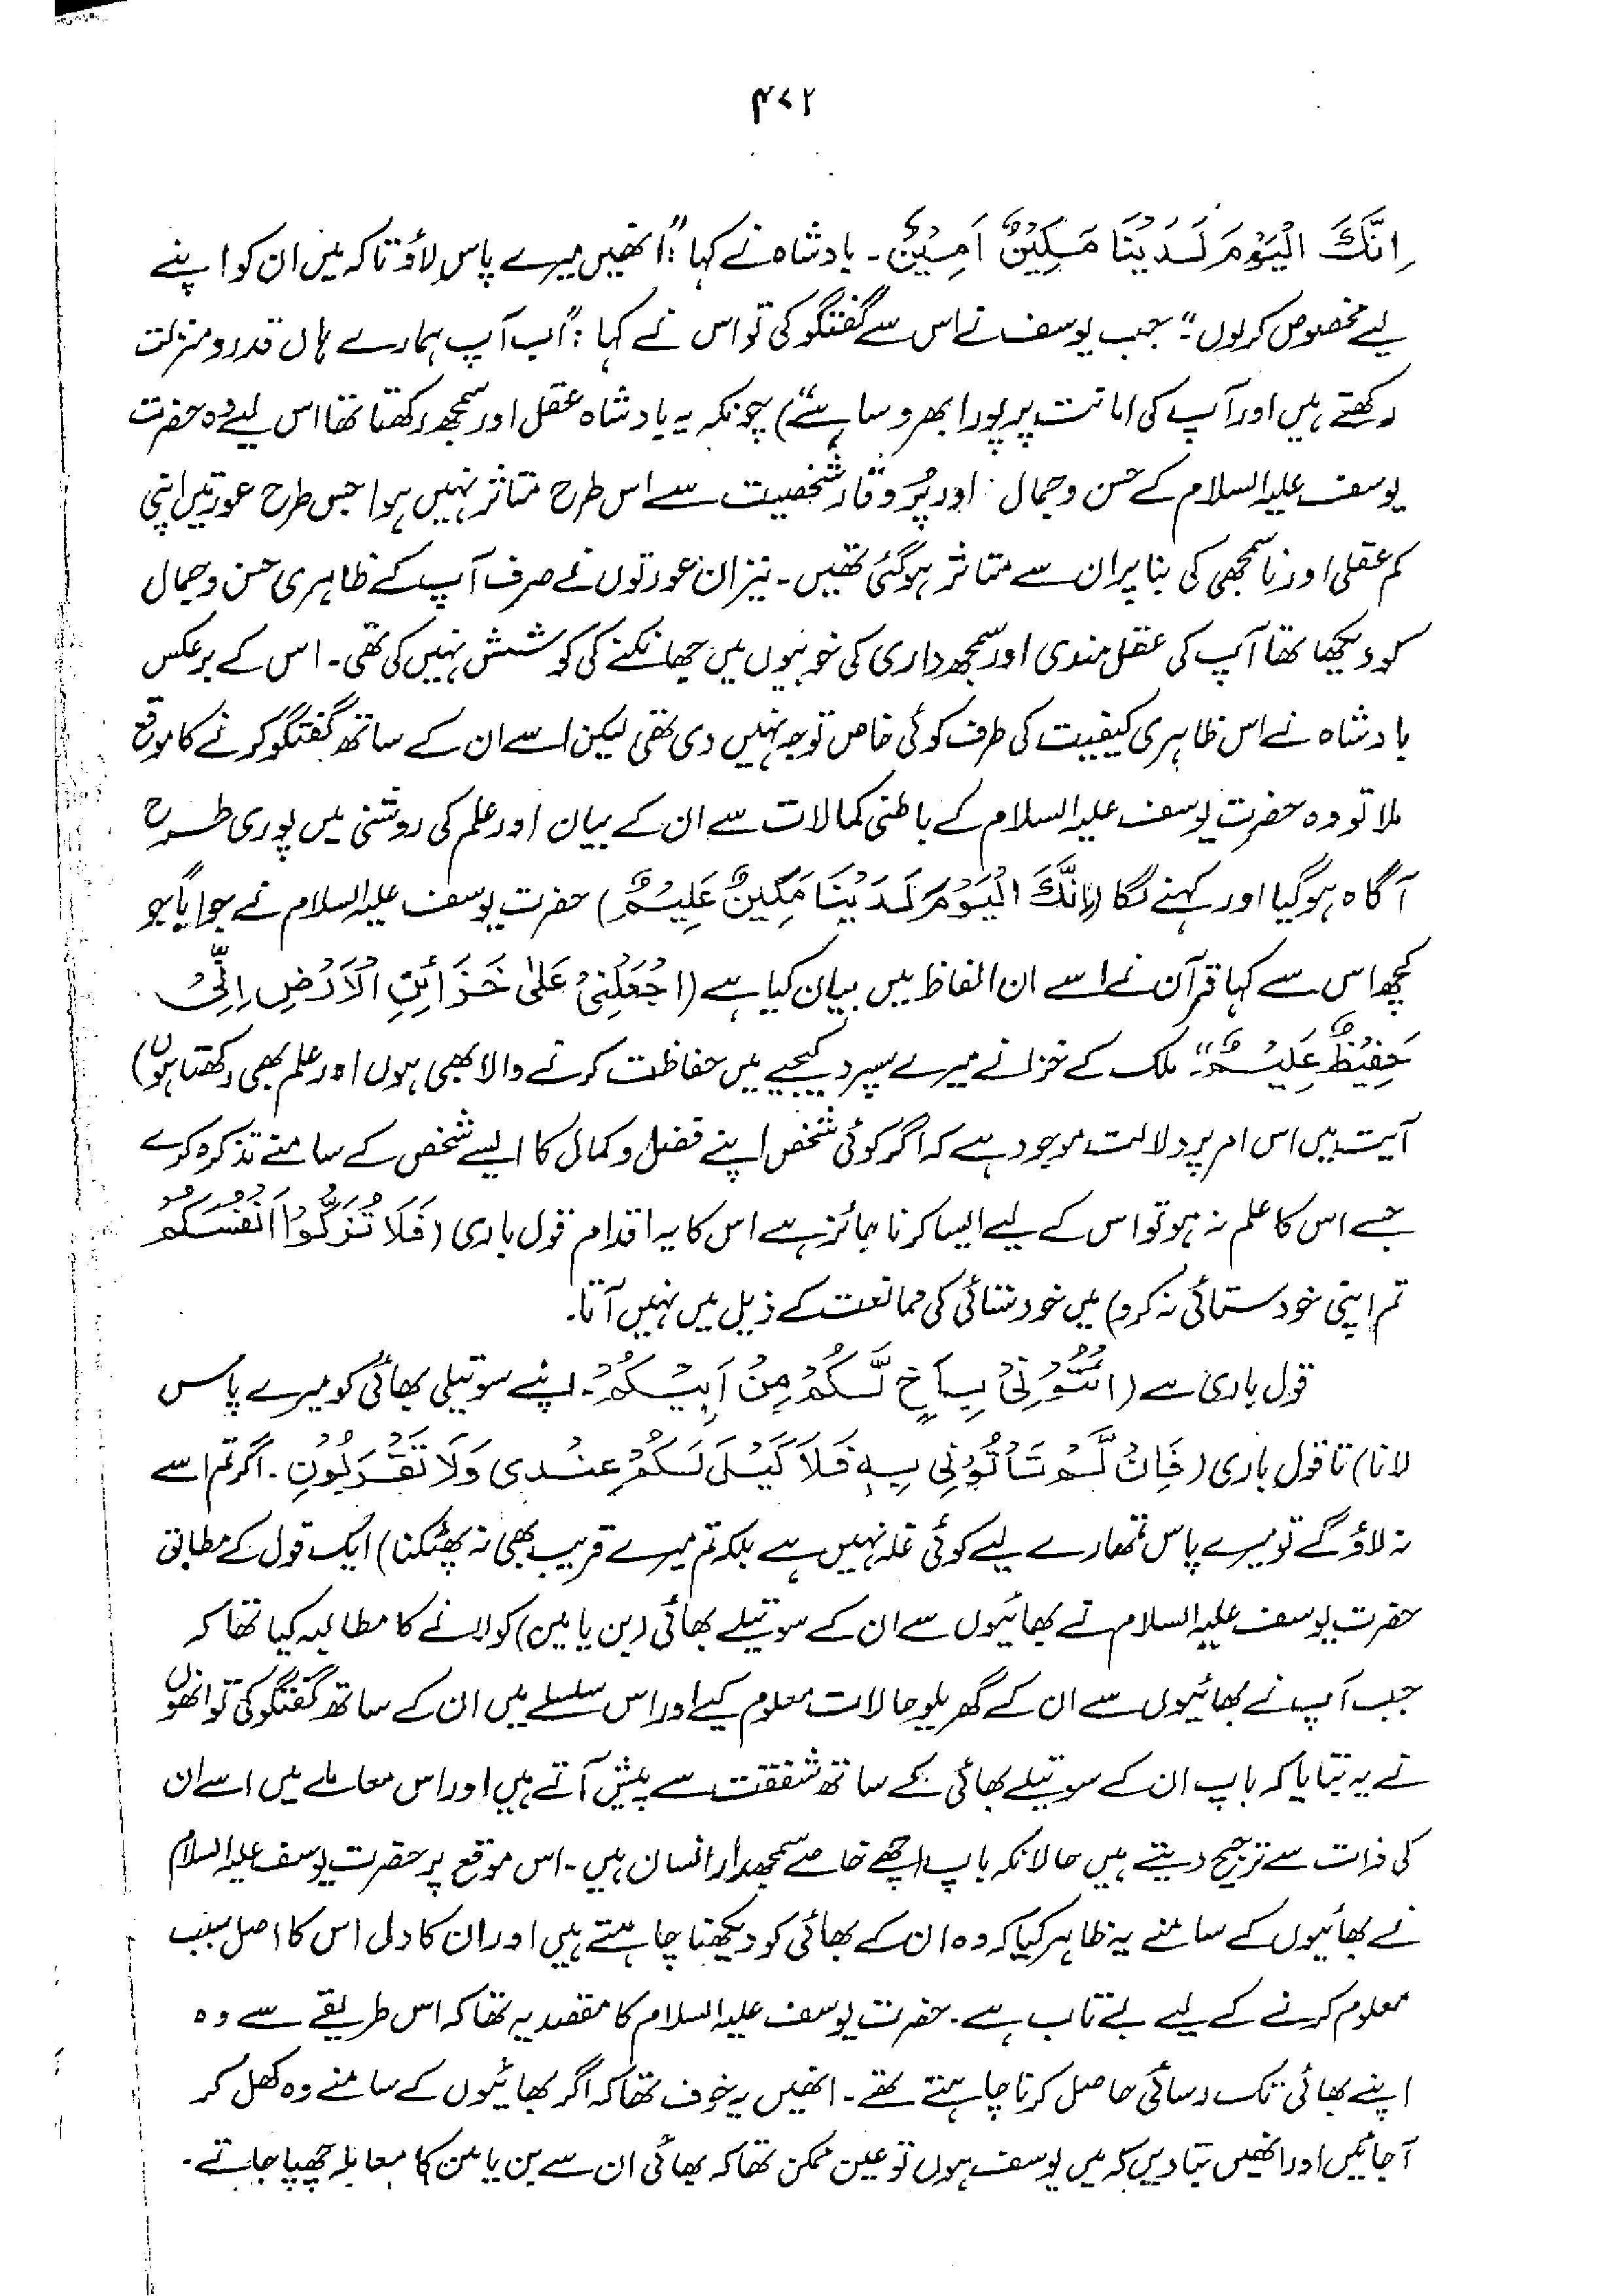 ۴۷۲
اِنَّكَ الْيَوْمَ لَدَيْنَا مَكِيْنٌ اَمِيْنٌ۔ بادشاہ نے کہا: "انھیں میرے پاس لاؤ تاکہ میں ان کو اپنے
لیے مخصوص کرلوں"۔ جب یوسف نے اس سے گفتگو کی تو اس نے کہا: "اب آپ ہمارے ہاں قدر و منزلت
رکھتے ہیں اور آپ کی امانت پر پورا بھروسا ہے") چونکہ یہ بادشاہ عقل اور سمجھ رکھتا تھا اس لیے وہ حضرت
یوسف علیہ السلام کے حسن و جمال اور پُر وقار شخصیت سے اس طرح متاثر نہیں ہوا جس طرح عورتیں اپنی
کم عقلی اور ناسمجھی کی بنا پر ان سے متاثر ہوگئی تھیں۔ نیز ان عورتوں نے صرف آپ کے ظاہری حسن و جمال
کو دیکھا تھا آپ کی عقل مندی اور سمجھ داری کی خوبیوں میں جھانکنے کی کوشش نہیں کی تھی۔ اس کے برعکس
بادشاہ نے اس ظاہری کیفیت کی طرف کوئی خاص توجہ نہیں دی تھی لیکن اسے ان کے ساتھ گفتگو کرنے کا موقع
ملا تو وہ حضرت یوسف علیہ السلام کے باطنی کمالات سے ان کے بیان اور علم کی روشنی میں پوری طرح
آگاہ ہوگیا اور کہنے لگا (اِنَّكَ الْيَوْمَ لَدَيْنَا مَكِيْنٌ عَلِيْمٌ) حضرت یوسف علیہ السلام نے جواباً جو
کچھ اس سے کہا قرآن نے اسے ان الفاظ میں بیان کیا ہے (اجْعَلْنِيْ عَلٰى خَزَائِنِ الْاَرْضِ اِنِّيْ
حَفِيْظٌ عَلِيْمٌ"۔ ملک کے خزانے میرے سپرد کیجیے میں حفاظت کرنے والا بھی ہوں اور علم بھی رکھتا ہوں)
آیت میں اس امر پر دلالت موجود ہے کہ اگر کوئی شخص اپنے فضل و کمال کا ایسے شخص کے سامنے تذکرہ کرے
جسے اس کا علم نہ ہو تو اس کے لیے ایسا کرنا جائز ہے اس کا یہ اقدام قول باری (فَلَا تُزَكُّوْا اَنْفُسَكُمْ
تم اپنی خود ستائی نہ کرو) میں خود ستائی کی ممانعت کے ذیل میں نہیں آتا۔
قول باری ہے (ائْتُوْنِيْ بِاَخٍ لَّكُمْ مِنْ اَبِيْكُمْ۔ اپنے سوتیلی بھائی کو میرے پاس
لانا) تا قول باری (فَاِنْ لَّمْ تَاْتُوْنِي بِهٖ فَلَا كَيْلَ لَكُمْ عِنْدِى وَلَا تَقْرَبُوْنِ۔ اگر تم اسے
نہ لاؤ گے تو میرے پاس تمھارے لیے کوئی غلہ نہیں ہے بلکہ تم میرے قریب بھی نہ پھٹکنا) ایک قول کے مطابق
حضرت یوسف علیہ السلام نے بھائیوں سے ان کے سوتیلے بھائی (بن یامین) کو لانے کا مطالبہ کیا تھا کہ
جب آپ نے بھائیوں سے ان کے گھریلو حالات معلوم کیے اور اس سلسلے میں ان کے ساتھ گفتگو کی تو انھوں
نے یہ بتایا کہ باپ ان کے سوتیلے بھائی کے ساتھ شفقت سے پیش آتے ہیں اور اس معاملے میں اسے ان
کی ذات سے ترجیح دیتے ہیں حالانکہ باپ اچھے خاصے سمجھدار انسان ہیں۔ اس موقع پر حضرت یوسف علیہ السلام
نے بھائیوں کے سامنے یہ ظاہر کیا کہ وہ ان کے بھائی کو دیکھنا چاہتے ہیں اور ان کا دل اس کا اصل سبب
معلوم کرنے کے لیے بے تاب ہے۔ حضرت یوسف علیہ السلام کا مقصد یہ تھا کہ اس طریقے سے وہ
اپنے بھائی تک رسائی حاصل کرنا چاہتے تھے۔ انھیں یہ خوف تھا کہ اگر بھائیوں کے سامنے وہ کھل کر
آجائیں اور انھیں بتادیں کہ میں یوسف ہوں تو عین ممکن تھا کہ بھائی ان سے بن یامن کا معاملہ چھپا جاتے۔